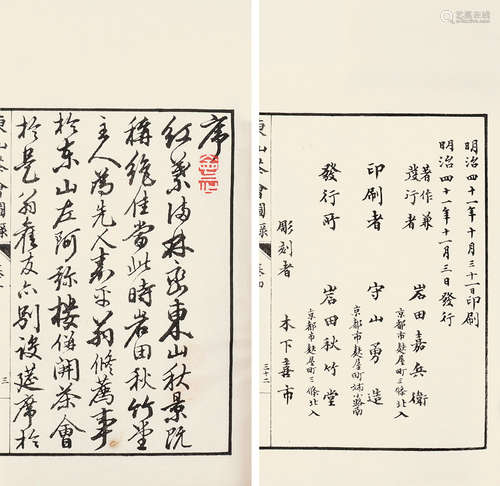 序
紅葉滿林密東山秋景既
稱絶佳當此時岩田秋竹堂
主人為先人春平翁修薦事
於東山左阿弥樓併開茶會
於是翁舊友亦別設莚席於
東山茶會圖錄
三
明治四十一年十月三十一日印刷
明治四十一年十一月三日發行
著作兼
發行者
岩田嘉兵衛
京都市麩屋町三條北入
印刷者
守山勇造
京都市麩屋町
發行所
岩田秋竹堂
京都市麩屋町三條北入
彫刻者
木下喜市
三十二